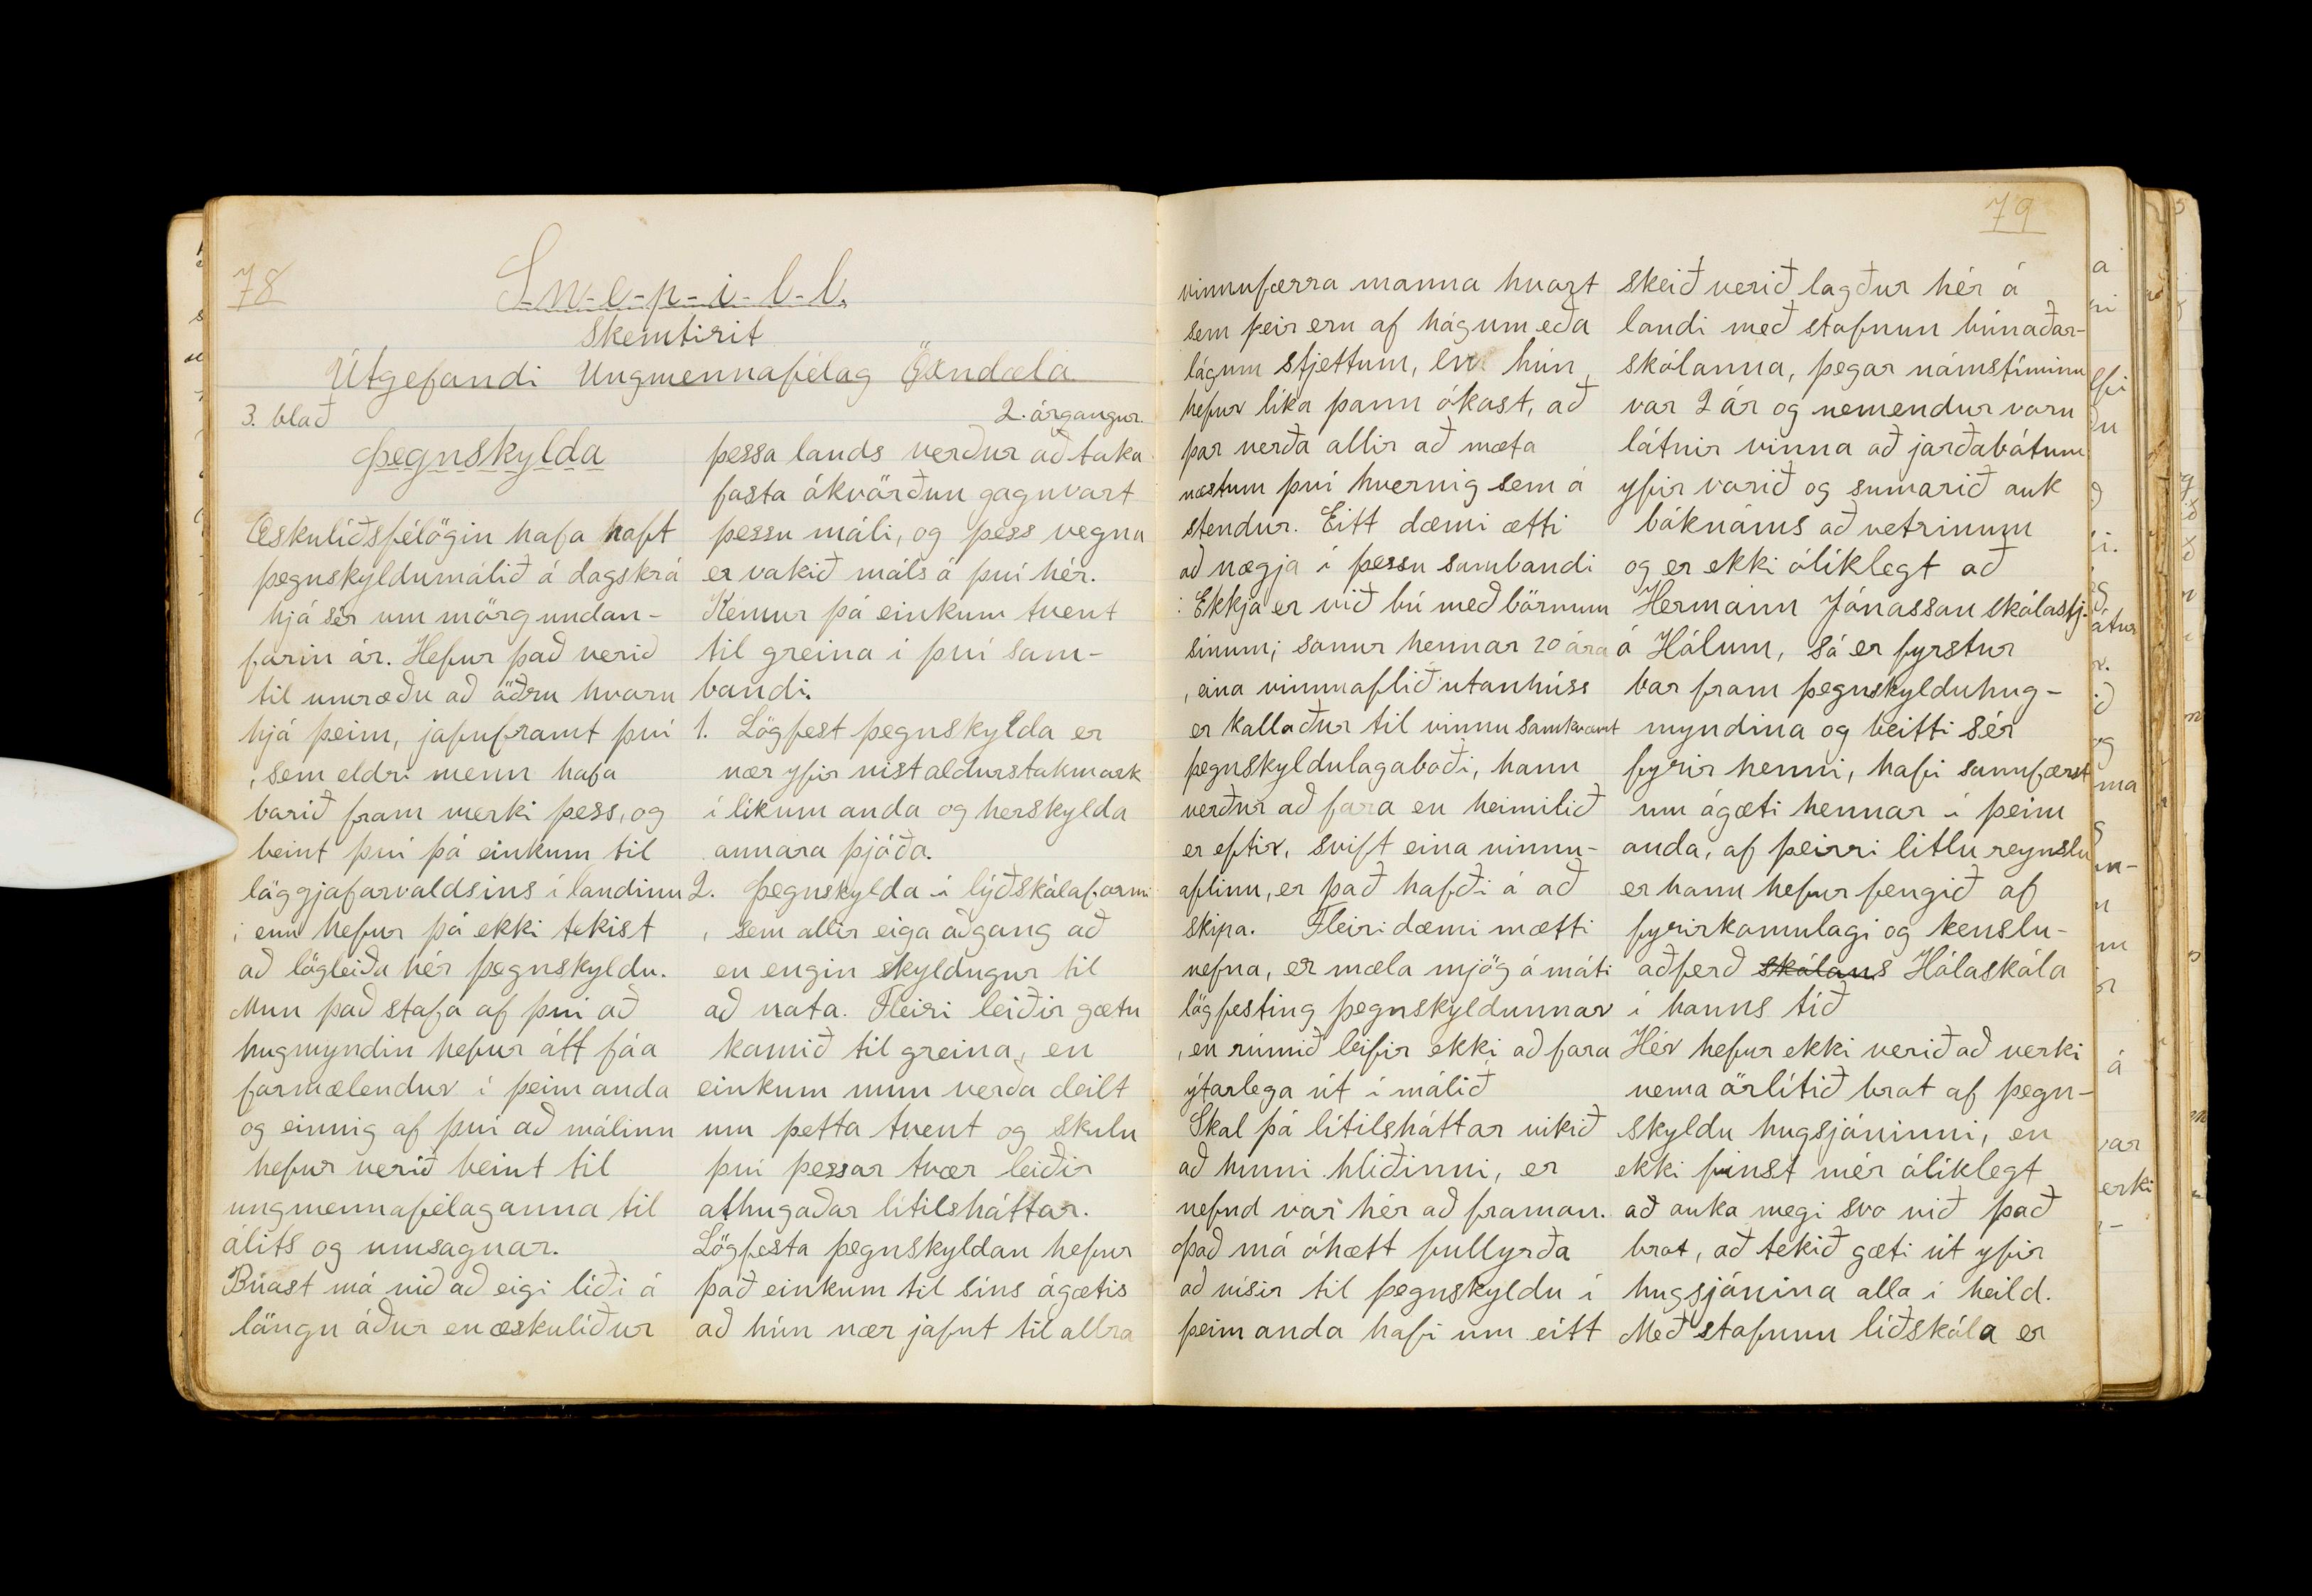 78
S-n-e-p-i-l-l.
Skemtirit
Útgefandi Ungmennafélag Öxndæla
3. blað
2. árgangur.
Þegnskylda
Æskulíðsfélögin hafa haft
þegnskyldumálið á dagskrá
hjá sér um mörg undan-
farin ár. Hefur það verið
til umræðu að öðru hvoru
hjá þeim, jafnframt því
, sem eldri menn hafa
borið fram merki þess, og
beint því þá einkum til
löggjafarvaldsins í landinu
; enn hefur þá ekki tekist
að lögleiða hér þegnskyldu.
Mun það stafa af því að
hugmyndin hefur átt fáa
formælendur í þeim anda
og einnig af því að málinu
hefur verið beint til
ungmennafélaganna til
álits og umsagnar.
Búast má við að eigi líði á
löngu áður en æskulíður
þessa lands verður að taka
fasta ákvörðun gagnvart
þessu máli, og þess vegna
er vakið máls á því hér.
Kemur þá einkum tvent
til greina í því sam-
bandi.
1. Lögfest þegnskylda er
nær yfir vist aldurstakmark
í líkum anda og herskylda
annara þjóða.
2. Þegnskylda í lýðskólaformi
, sem allir eiga aðgang að
en engin skyldugur til
að nota. Fleiri leiðir gætu
komið til greina, en
einkum mun verða deilt
um þetta tvent og skulu
því þessar tvær leiðir
athugaðar lítilsháttar.
Lögfesta þegnskyldan hefur
það einkum til síns ágætis
að hún nær jafnt til allra
79
vinnufærra manna hvort
sem þeir eru af hágum eða
lágum stjettum, en hún
hefur líka þann ókost, að
þar verða allir að mæta
næstum því hvernig sem á
stendur. Eitt dæmi ætti
að nægja í þessu sambandi
: Ekkja er við bú með börnum
sínum; sonur hennar 20 ára
, eina vinnuaflið utanhúss
er kallaður til vinnu samkvæmt
þegnskyldulagaboði, hann
verður að fara en heimilið
er eftir, svift eina vinnu-
aflinu, er það hafði á að
skipa. Fleiri dæmi mætti
nefna, er mæla mjög á móti
lögfesting þegnskyldunnar
, en rúmið leifir ekki að fara
ýtarlega út í málið
Skal þá lítilsháttar vikið
að hinni hliðinni, er
nefnd var hér að framan.
Það má óhætt fullyrða
að vísir til þegnskyldu í
þeim anda hafi um eitt
skeið verið lagður hér á
landi með stofnun búnaðar-
skólanna, þegar námstíminn
var 2 ár og nemendur voru
látnir vinna að jarðabótum
yfir vorið og sumarið auk
bóknáms að vetrinum
og er ekki ólíklegt að
Hermann Jónasson skólastj.
á Hólum, sá er fyrstur
bar fram þegnskylduhug-
myndina og beitti sér
fyrir henni, hafi sannfærst
um ágæti hennar í þeim
anda, af þeirri litlu reynslu
er hann hefur fengið af
fyrirkomulagi og kenslu-
aðferð skólans Hólaskóla
í hanns tíð
Hér hefur ekki verið að verki
nema örlítið brot af þegn-
skyldu hugsjóninni, en
ekki finst mér ólíklegt
að auka megi svo við það
brot, að tekið gæti út yfir
hugsjónina alla í heild.
Með stofnun líðskóla er